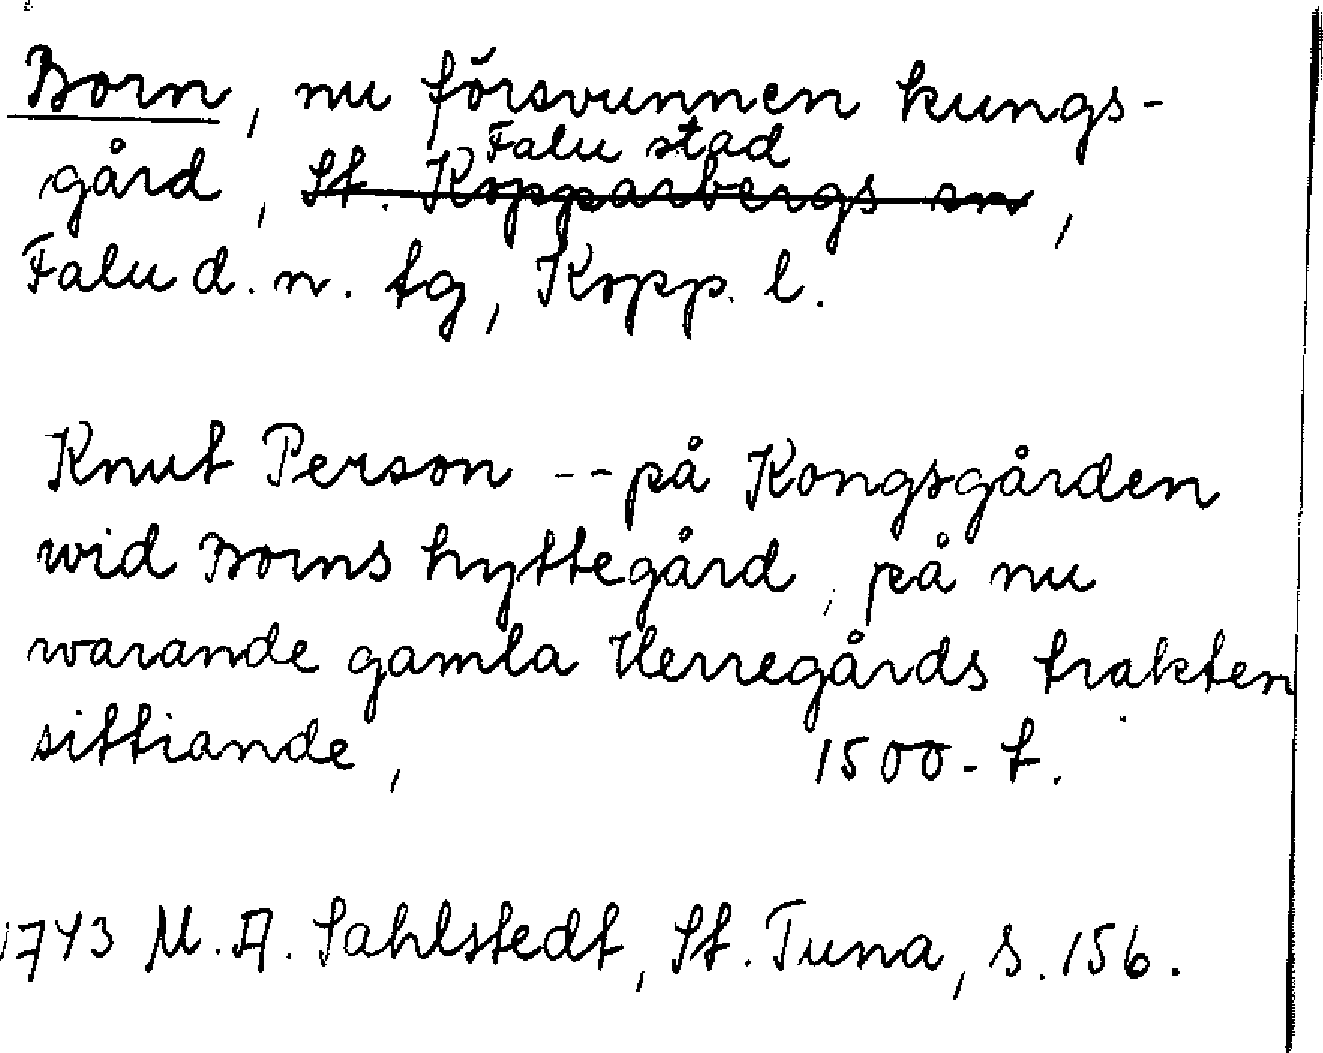 Born, nu försvunnen kungs-
Falu stad
gård, St. Kopparbergs sn,
Falu d. n. tg, Kopp. l.
Knut Person -- på Kongsgården
wid Borns hyttegård, på nu
warande gamla Herregårds trakten
sittiande, 1500-t.
1743 M. A. Sahlstedt, St. Tuna, s. 156.